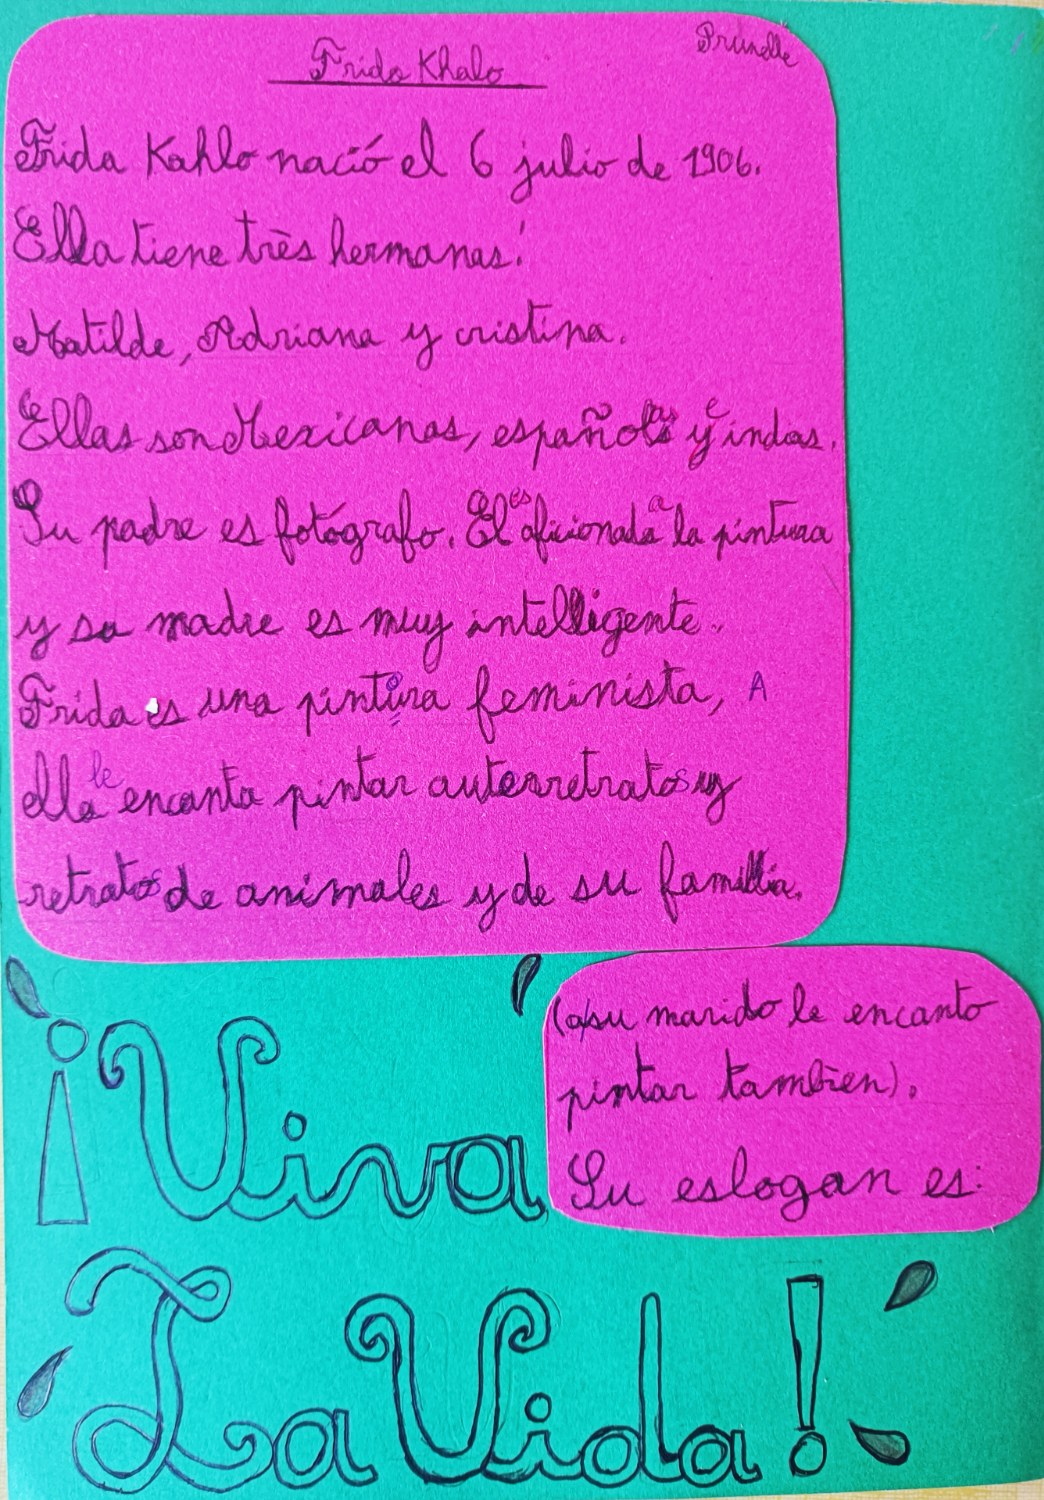 Prunelle
Frida Khalo
Frida Kahlo nació el 6 julio de 1906.
Ella tiene très hermanas:
Matilde, Adriana y cristina.
Ellas son Mexicanas, españolas e indas.
Su padre es fotógrafo. El es aficionado a la pintura
y su madre es muy intelligente.
Frida es una pintora feminista, A
ella le encanta pintar autorretratos y
retratos de animales y de su familia.
(a su marido le encanto
pintar tambien).
Su eslogan es:
¡Viva
La Vida!